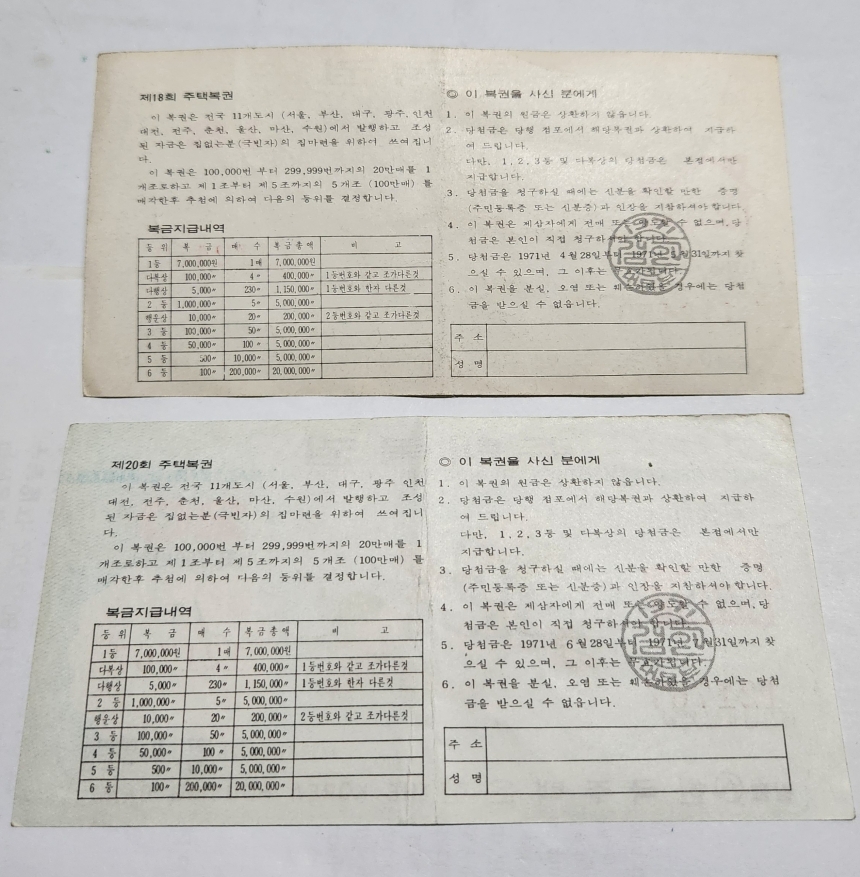 제18회 주택복권
이 복권은 전국 11개도시 (서울, 부산, 대구, 광주, 인천
대전, 전주, 춘천, 울산, 마산, 수원)에서 발행하고 조성
된 자금은 집없는분(국민자)의 집마련을 위하여 쓰여집니
다.
이 복권은 100,000번 부터 299,999번까지의 20만매를 1
개조로하고 제1조부터 제5조까지의 5개조 (100만매) 를
매각한후 추첨에 의하여 다음의 등위를 결정합니다.
복금지급내역
등 위 복 금 매 수 복금총액 비 고
1등 7,000,000원 1매 7,000,000원
다복상 100,000〃 4〃 400,000〃 1등번호와 같고 조가다른것
다행상 5,000〃 230〃 1,150,000〃 1등번호와 한자 다른것
2 등 1,000,000〃 5〃 5,000,000〃
행운상 10,000〃 20〃 200,000〃 2등번호와 같고 조가다른것
3 등 100,000〃 50〃 5,000,000〃
4 등 50,000〃 100〃 5,000,000〃
5 등 500〃 10,000〃 5,000,000〃
6 등 100〃 200,000〃 20,000,000〃
◎ 이 복권을 사신 분에게
1. 이 복권의 원금은 상환하지 않읍니다.
2. 당첨금은 당행 점포에서 해당복권과 상환하여 지급하
여 드립니다.
다만, 1, 2, 3등 및 다복상의 당첨금은 본점에서만
지급합니다.
3. 당첨금을 청구하실 때에는 신분을 확인할 만한 증명
(주민등록증 또는 신분증)과 인장을 지참하셔야 합니다.
4. 이 복권은 제삼자에게 전매 또는 양도할 수 없으며, 당
첨금은 본인이 직접 청구하셔야 합니다.
5. 당첨금은 1971년 4월28일부터 1971년 5월31일까지 찾
으실 수 있으며, 그 이후는 무효가됩니다.
6. 이 복권을 분실, 오염 또는 훼손하였을 경우에는 당첨
금을 받으실 수 없읍니다.
주 소
성 명
제20회 주택복권
이 복권은 전국 11개도시 (서울, 부산, 대구, 광주 인천
대전, 전주, 춘천, 울산, 마산, 수원)에서 발행하고 조성
된 자금은 집없는분(국민자)의 집마련을 위하여 쓰여집니
다.
이 복권은 100,000번 부터 299,999번까지의 20만매를 1
개조로하고 제1조부터 제5조까지의 5개조 (100만매) 를
매각한후 추첨에 의하여 다음의 등위를 결정합니다.
복금지급내역
등 위 복 금 매 수 복금총액 비 고
1등 7,000,000원 1매 7,000,000원
다복상 100,000〃 4〃 400,000〃 1등번호와 같고 조가다른것
다행상 5,000〃 230〃 1,150,000〃 1등번호와 한자 다른것
2 등 1,000,000〃 5〃 5,000,000〃
행운상 10,000〃 20〃 200,000〃 2등번호와 같고 조가다른것
3 등 100,000〃 50〃 5,000,000〃
4 등 50,000〃 100〃 5,000,000〃
5 등 500〃 10,000〃 5,000,000〃
6 등 100〃 200,000〃 20,000,000〃
◎ 이 복권을 사신 분에게
1. 이 복권의 원금은 상환하지 않읍니다.
2. 당첨금은 당행 점포에서 해당복권과 상환하여 지급하
여 드립니다.
다만, 1, 2, 3등 및 다복상의 당첨금은 본점에서만
지급합니다.
3. 당첨금을 청구하실 때에는 신분을 확인할 만한 증명
(주민등록증 또는 신분증)과 인장을 지참하셔야 합니다.
4. 이 복권은 제삼자에게 전매 또는 양도할 수 없으며, 당
첨금은 본인이 직접 청구하셔야 합니다.
5. 당첨금은 1971년 6월28일부터 1971년 7월31일까지 찾
으실 수 있으며, 그 이후는 무효가됩니다.
6. 이 복권을 분실, 오염 또는 훼손하였을 경우에는 당첨
금을 받으실 수 없읍니다.
주 소
성 명